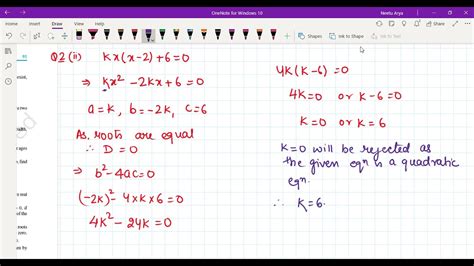 OneNote for Windows 10
Neetu Arya
Shapes
Ink to Shape
Q2 (ii) Kx(x-2)+6=0
⇒ Kx² -2Kx+6=0
a=K, b=-2K, C=6
As roots are equal
∴ D=0
⇒ b²-4ac=0
(-2K)²- 4×K×6=0
4K²- 24K=0
4K(K-6)=0
4K=0 or K-6=0
K=0 or K=6
K=0 will be rejected as
the given eqⁿ is a quadratic
eqⁿ.
∴ K=6.